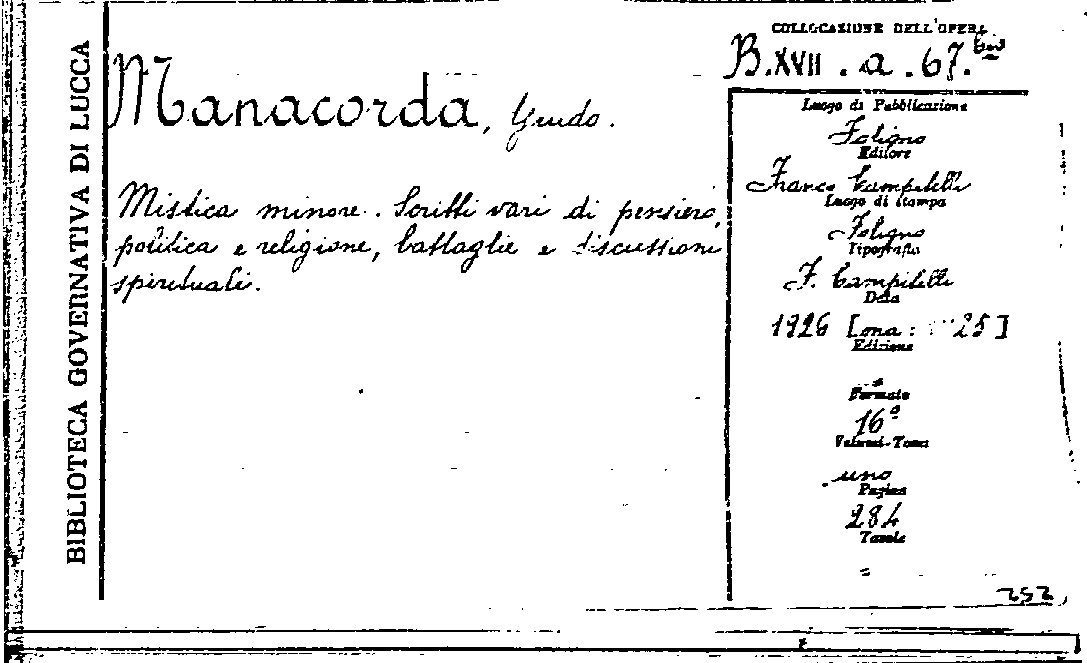 BIBLIOTECA GOVERNATIVA DI LUCCA
Manacorda, Guido.
Mistica minore. Scritti vari di pensiero,
politica e religione, battaglie e discussioni
spirituali.
COLLOCAZIONE DELL'OPERA
B.XVII.a.67.bis
Luogo di Pubblicazione
Foligno
Editore
Franco Campitelli
Luogo di stampa
Foligno
Tipografia
F. Campitelli
Data
1926 [ma: 1925]
Edizione
=
Formato
16°
Volumi-Tomi
uno
Pagine
284
Tavole
=
252